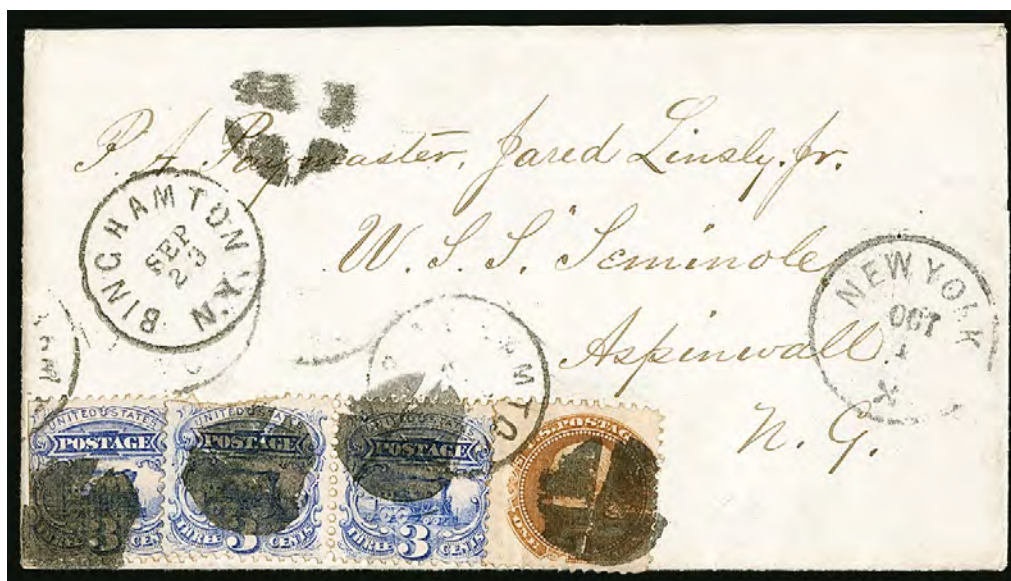 P. A. Paymaster, Jared Linsly, Jr.
U. S. S. "Seminole
Aspinwall.
N. G.
BINGHAMTON N.Y.
SEP
23
NEW YORK
OCT
1
UNITED STATES
POSTAGE
THREE 3 CENTS
UNITED STATES
POSTAGE
THREE 3 CENTS
UNITED STATES
POSTAGE
THREE 3 CENTS
U.S. POSTAGE
ONE